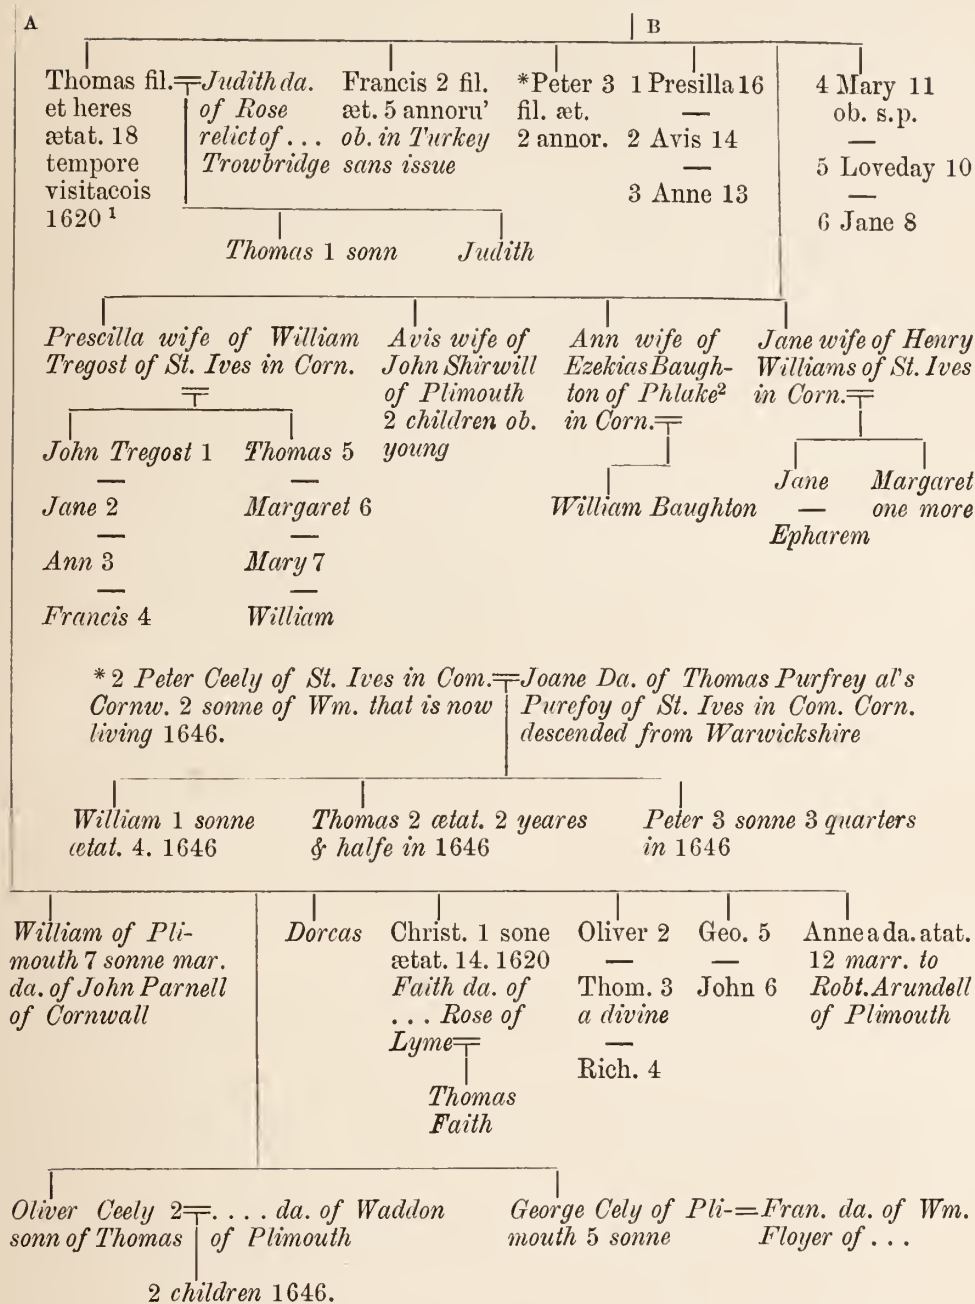 A
B
Thomas fil.
et heres
ætat. 18
tempore
visitacois
1620 ¹
Judith da.
of Rose
relict of . . .
Trowbridge
Francis 2 fil.
æt. 5 annoru'
ob. in Turkey
sans issue
*Peter 3
fil. æt.
2 annor.
1 Presilla 16
—
2 Avis 14
—
3 Anne 13
4 Mary 11
ob. s.p.
—
5 Loveday 10
—
6 Jane 8
Thomas 1 sonn
Judith
Prescilla wife of William
Tregost of St. Ives in Corn.
Avis wife of
John Shirwill
of Plimouth
2 children ob.
young
Ann wife of
Ezekias Baugh-
ton of Phlake²
in Corn.
Jane wife of Henry
Williams of St. Ives
in Corn.
John Tregost 1
—
Jane 2
—
Ann 3
—
Francis 4
Thomas 5
—
Margaret 6
—
Mary 7
—
William
William Baughton
Jane
—
Epharem
Margaret
one more
* 2 Peter Ceely of St. Ives in Com.
Cornw. 2 sonne of Wm. that is now
living 1646.
Joane Da. of Thomas Purfrey al's
Purefoy of St. Ives in Com. Corn.
descended from Warwickshire
William 1 sonne
ætat. 4. 1646
Thomas 2 ætat. 2 yeares
& halfe in 1646
Peter 3 sonne 3 quarters
in 1646
William of Pli-
mouth 7 sonne mar.
da. of John Parnell
of Cornwall
Dorcas
Christ. 1 sone
ætat. 14. 1620
Faith da. of
. . . Rose of
Lyme
Thomas
Faith
Oliver 2
—
Thom. 3
a divine
—
Rich. 4
Geo. 5
—
John 6
Anne a da. atat.
12 marr. to
Robt. Arundell
of Plimouth
Oliver Ceely 2
sonn of Thomas
. . . . da. of Waddon
of Plimouth
George Cely of Pli-
mouth 5 sonne
Fran. da. of Wm.
Floyer of . . .
2 children 1646.